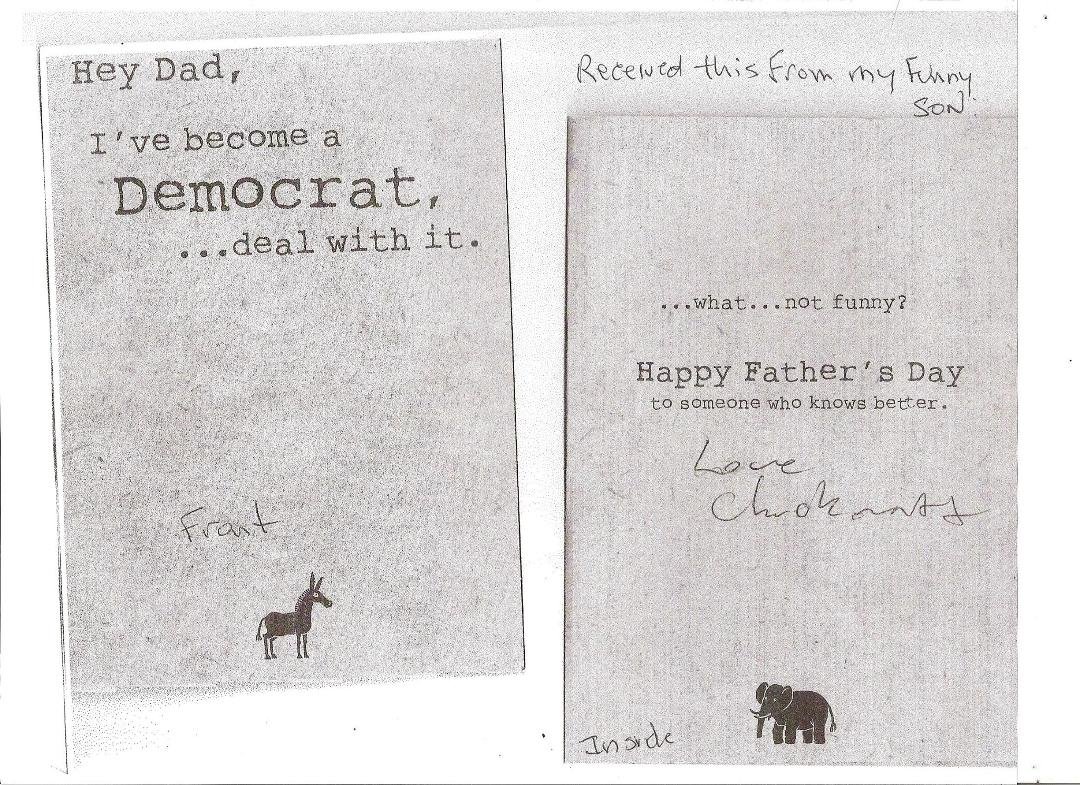 Hey Dad,
I've become a
Democrat,
...deal with it.
Front
Received this from my Funny
SON.
...what...not funny?
Happy Father's Day
to someone who knows better.
Love
Inside